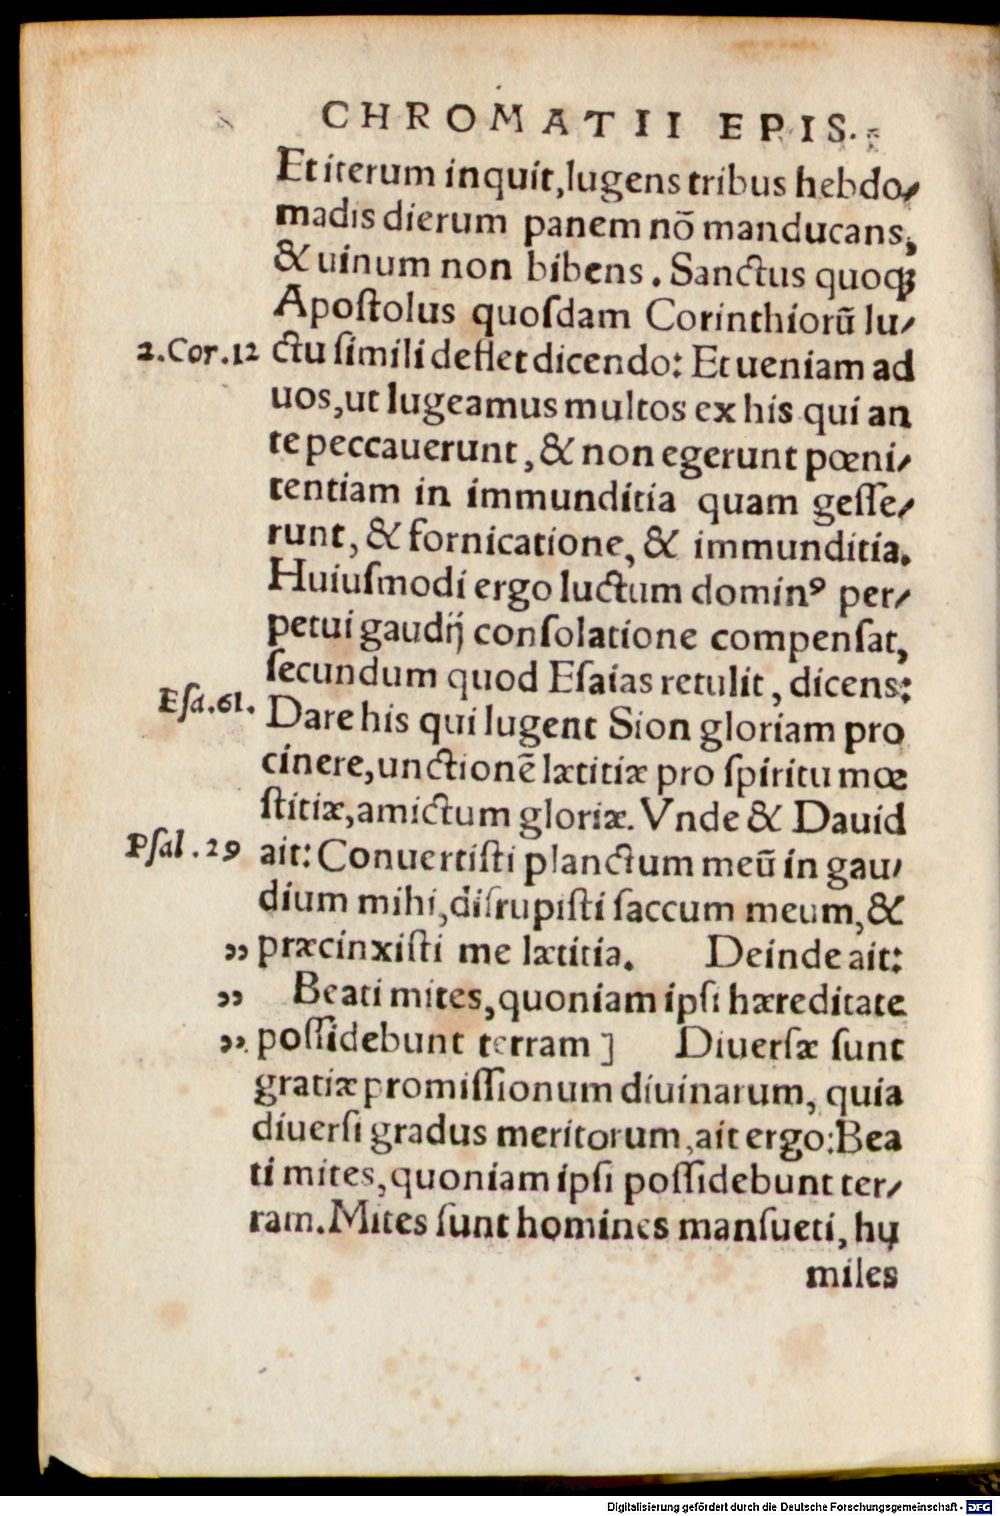 CHROMATII EPIS.
Et iterum inquit, lugens tribus hebdo⸗
madis dierum panem nõ manducans,
& uinum non bibens. Sanctus quoqꝫ
Apoſtolus quoſdam Corinthiorũ lu⸗
2.Cor.12 ctu ſimili deflet dicendo: Et ueniam ad
uos, ut lugeamus multos ex his qui an
te peccauerunt, & non egerunt pœni⸗
tentiam in immunditia quam geſſe⸗
runt, & fornicatione, & immunditia.
Huiuſmodi ergo luctum dominꝰ per⸗
petui gaudij conſolatione compenſat,
ſecundum quod Eſaias retulit, dicens:
Eſa.61. Dare his qui lugent Sion gloriam pro
cinere, unctionẽ lætitiæ pro ſpiritu mœ
ſtitiæ, amictum gloriæ. Vnde & Dauid
Pſal.29 ait: Conuertiſti planctum meũ in gau⸗
dium mihi, diſrupiſti ſaccum meum, &
„ præcinxiſti me lætitia. Deinde ait:
„ Beati mites, quoniam ipſi hæreditate
„ poſſidebunt terram] Diuerſæ ſunt
gratiæ promiſſionum diuinarum, quia
diuerſi gradus meritorum, ait ergo: Bea
ti mites, quoniam ipſi poſſidebunt ter⸗
ram. Mites ſunt homines manſueti, hu
miles
Digitalisierung gefördert durch die Deutsche Forschungsgemeinschaft - DFG